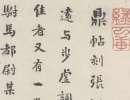 鼎帖刻張
遠与步虚詞
佳者又有一
駙馬都尉某